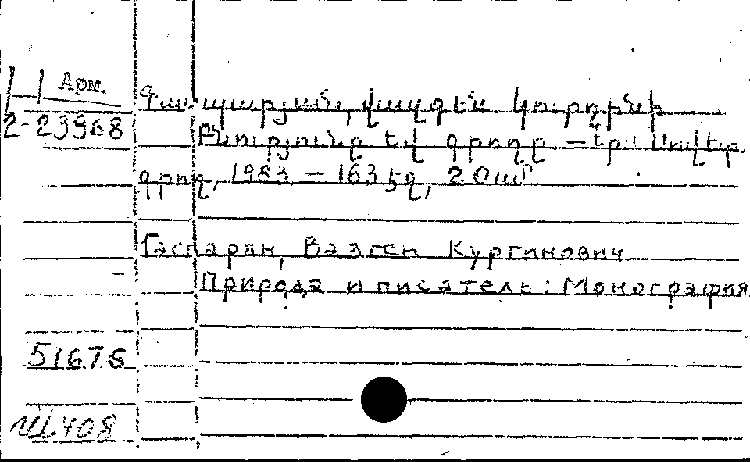 Арм.
2-23968
Գասպարյան, Վազգեն Կուրղինի
Բնությունը եվ գրողը – Եր.: Սովետ.
գրող, 1983 – 163 էջ, 20 սմ
Гаспарян, Вазген Кургинович
Природа и писатель: Монография
51676